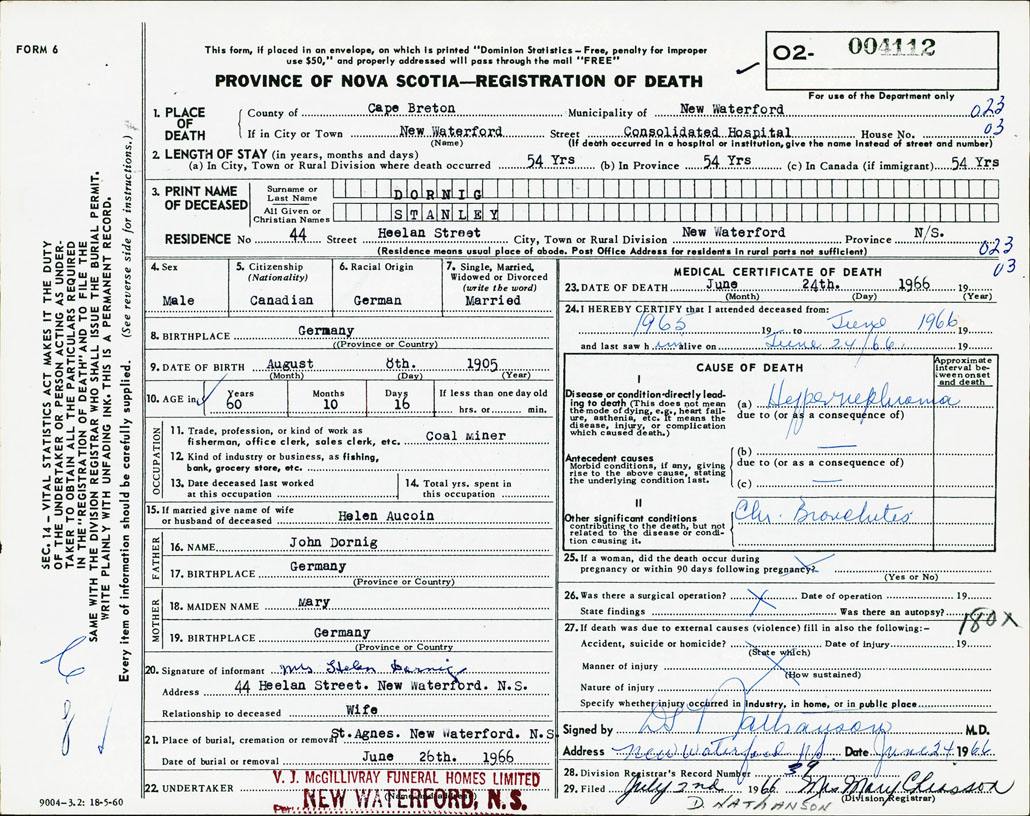 FORM 6
This form, if placed in an envelope, on which is printed "Dominion Statistics – Free, penalty for improper
use $50," and properly addressed will pass through the mail "FREE"
PROVINCE OF NOVA SCOTIA—REGISTRATION OF DEATH
02- 004112
For use of the Department only
1. PLACE OF DEATH
County of Cape Breton Municipality of New Waterford 023
If in City or Town New Waterford Street Consolidated Hospital House No. 03
(Name) (If death occurred in a hospital or institution, give the name instead of street and number)
2. LENGTH OF STAY (in years, months and days)
(a) In City, Town or Rural Division where death occurred 54 Yrs (b) In Province 54 Yrs (c) In Canada (if immigrant) 54 Yrs
3. PRINT NAME OF DECEASED
Surname or Last Name DORNIG
All Given or Christian Names STANLEY
RESIDENCE No 44 Street Heelan Street City, Town or Rural Division New Waterford Province N/S.
(Residence means usual place of abode. Post Office Address for residents in rural parts not sufficient) 023
03
4. Sex
Male
5. Citizenship
(Nationality)
Canadian
6. Racial Origin
German
7. Single, Married,
Widowed or Divorced
(write the word)
Married
8. BIRTHPLACE Germany
((Province or Country)
9. DATE OF BIRTH August 8th. 1905
(Month) (Day) (Year)
10. AGE in Years 60 Months 10 Days 16 If less than one day old
hrs. or min.
OCCUPATION
11. Trade, profession, or kind of work as
fisherman, office clerk, sales clerk, etc. Coal Miner
12. Kind of industry or business, as fishing,
bank, grocery store, etc.
13. Date deceased last worked
at this occupation
14. Total yrs. spent in
this occupation
15. If married give name of wife
or husband of deceased Helen Aucoin
FATHER
16. NAME John Dornig
17. BIRTHPLACE Germany
(Province or Country)
MOTHER
18. MAIDEN NAME Mary
19. BIRTHPLACE Germany
(Province or Country
20. Signature of informant Mrs Helen Dornig
Address 44 Heelan Street. New Waterford. N.S.
Relationship to deceased Wife
21. Place of burial, cremation or removal St.Agnes. New Waterford. N.S
Date of burial or removal June 26th. 1966
22. UNDERTAKER V. J. McGILLIVRAY FUNERAL HOMES LIMITED
Per. NEW WATERFORD, N.S.
9004-3.2: 18-5-60
MEDICAL CERTIFICATE OF DEATH
23. DATE OF DEATH June 24th. 1966 19
(Month) (Day) (Year)
24. I HEREBY CERTIFY that I attended deceased from:
1965 19 to June 1966 19
and last saw h im alive on June 24/66 19
CAUSE OF DEATH
Approximate
interval be-
tween onset
and death
I
Disease or condition directly lead-
ing to death (This does not mean
the mode of dying, e.g., heart fail-
ure, asthenia, etc. It means the
disease, injury, or complication
which caused death.)
(a) Hypernephroma
due to (or as a consequence of)
Antecedent causes
Morbid conditions, if any, giving
rise to the above cause, stating
the underlying condition last.
(b) —
due to (or as a consequence of)
(c) —
II
Other significant conditions
contributing to the death, but not
related to the disease or condi-
tion causing it.
Chr. Bronchitis
25. If a woman, did the death occur during
pregnancy or within 90 days following pregnancy?
(Yes or No)
26. Was there a surgical operation? Date of operation 19
State findings Was there an autopsy?
180X
27. If death was due to external causes (violence) fill in also the following:–
Accident, suicide or homicide? Date of injury 19
(State which)
Manner of injury
(How sustained)
Nature of injury
Specify whether injury occurred in industry, in home, or in public place
Signed by D Nathanson M.D.
Address New Waterford NS Date June 24 1966
28. Division Registrar's Record Number 39
29. Filed July 2nd 1966 Mrs Mary Chiasson
(Division Registrar)
D. NATHANSON
SEC. 14 – VITAL STATISTICS ACT MAKES IT THE DUTY
OF THE UNDERTAKER OR PERSON ACTING AS UNDER-
TAKER TO OBTAIN ALL THE PARTICULARS REQUIRED
IN THE "REGISTRATION OF DEATH" AND TO FILE THE
SAME WITH THE DIVISION REGISTRAR WHO SHALL ISSUE THE BURIAL PERMIT.
WRITE PLAINLY WITH UNFADING INK. THIS IS A PERMANENT RECORD.
Every item of information should be carefully supplied. (See reverse side for instructions.)